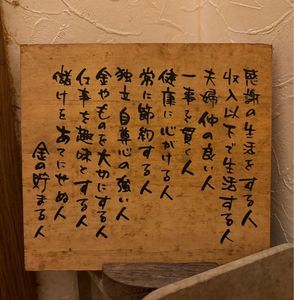 感謝の生活をする人
収入以下で生活する人
夫婦仲の良い人
一事を貫く人
健康に心がける人
常に節約する人
独立自尊心の強い人
金やものを大切にする人
仕事を趣味とする人
儲けをあてにせぬ人
金の貯まる人